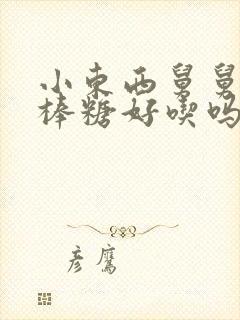 小东西舅舅
棒糖好喫吗
彦鹰